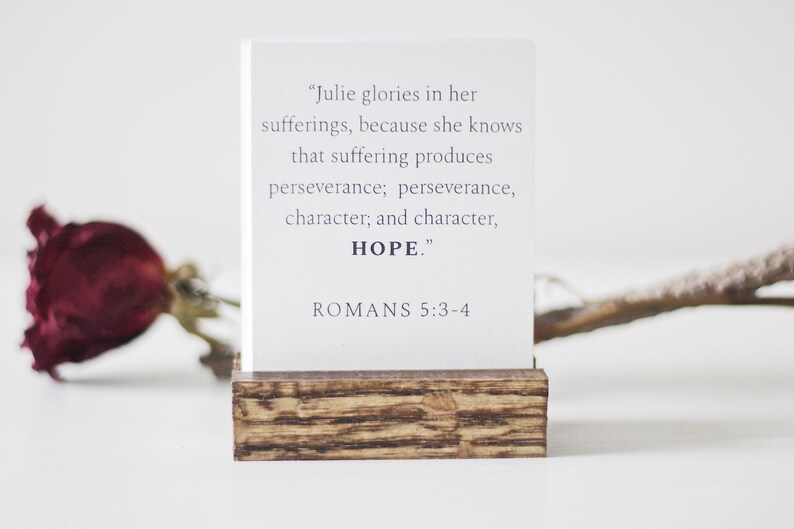 “Julie glories in her
sufferings, because she knows
that suffering produces
perseverance;  perseverance,
character; and character,
HOPE.”
ROMANS 5:3-4